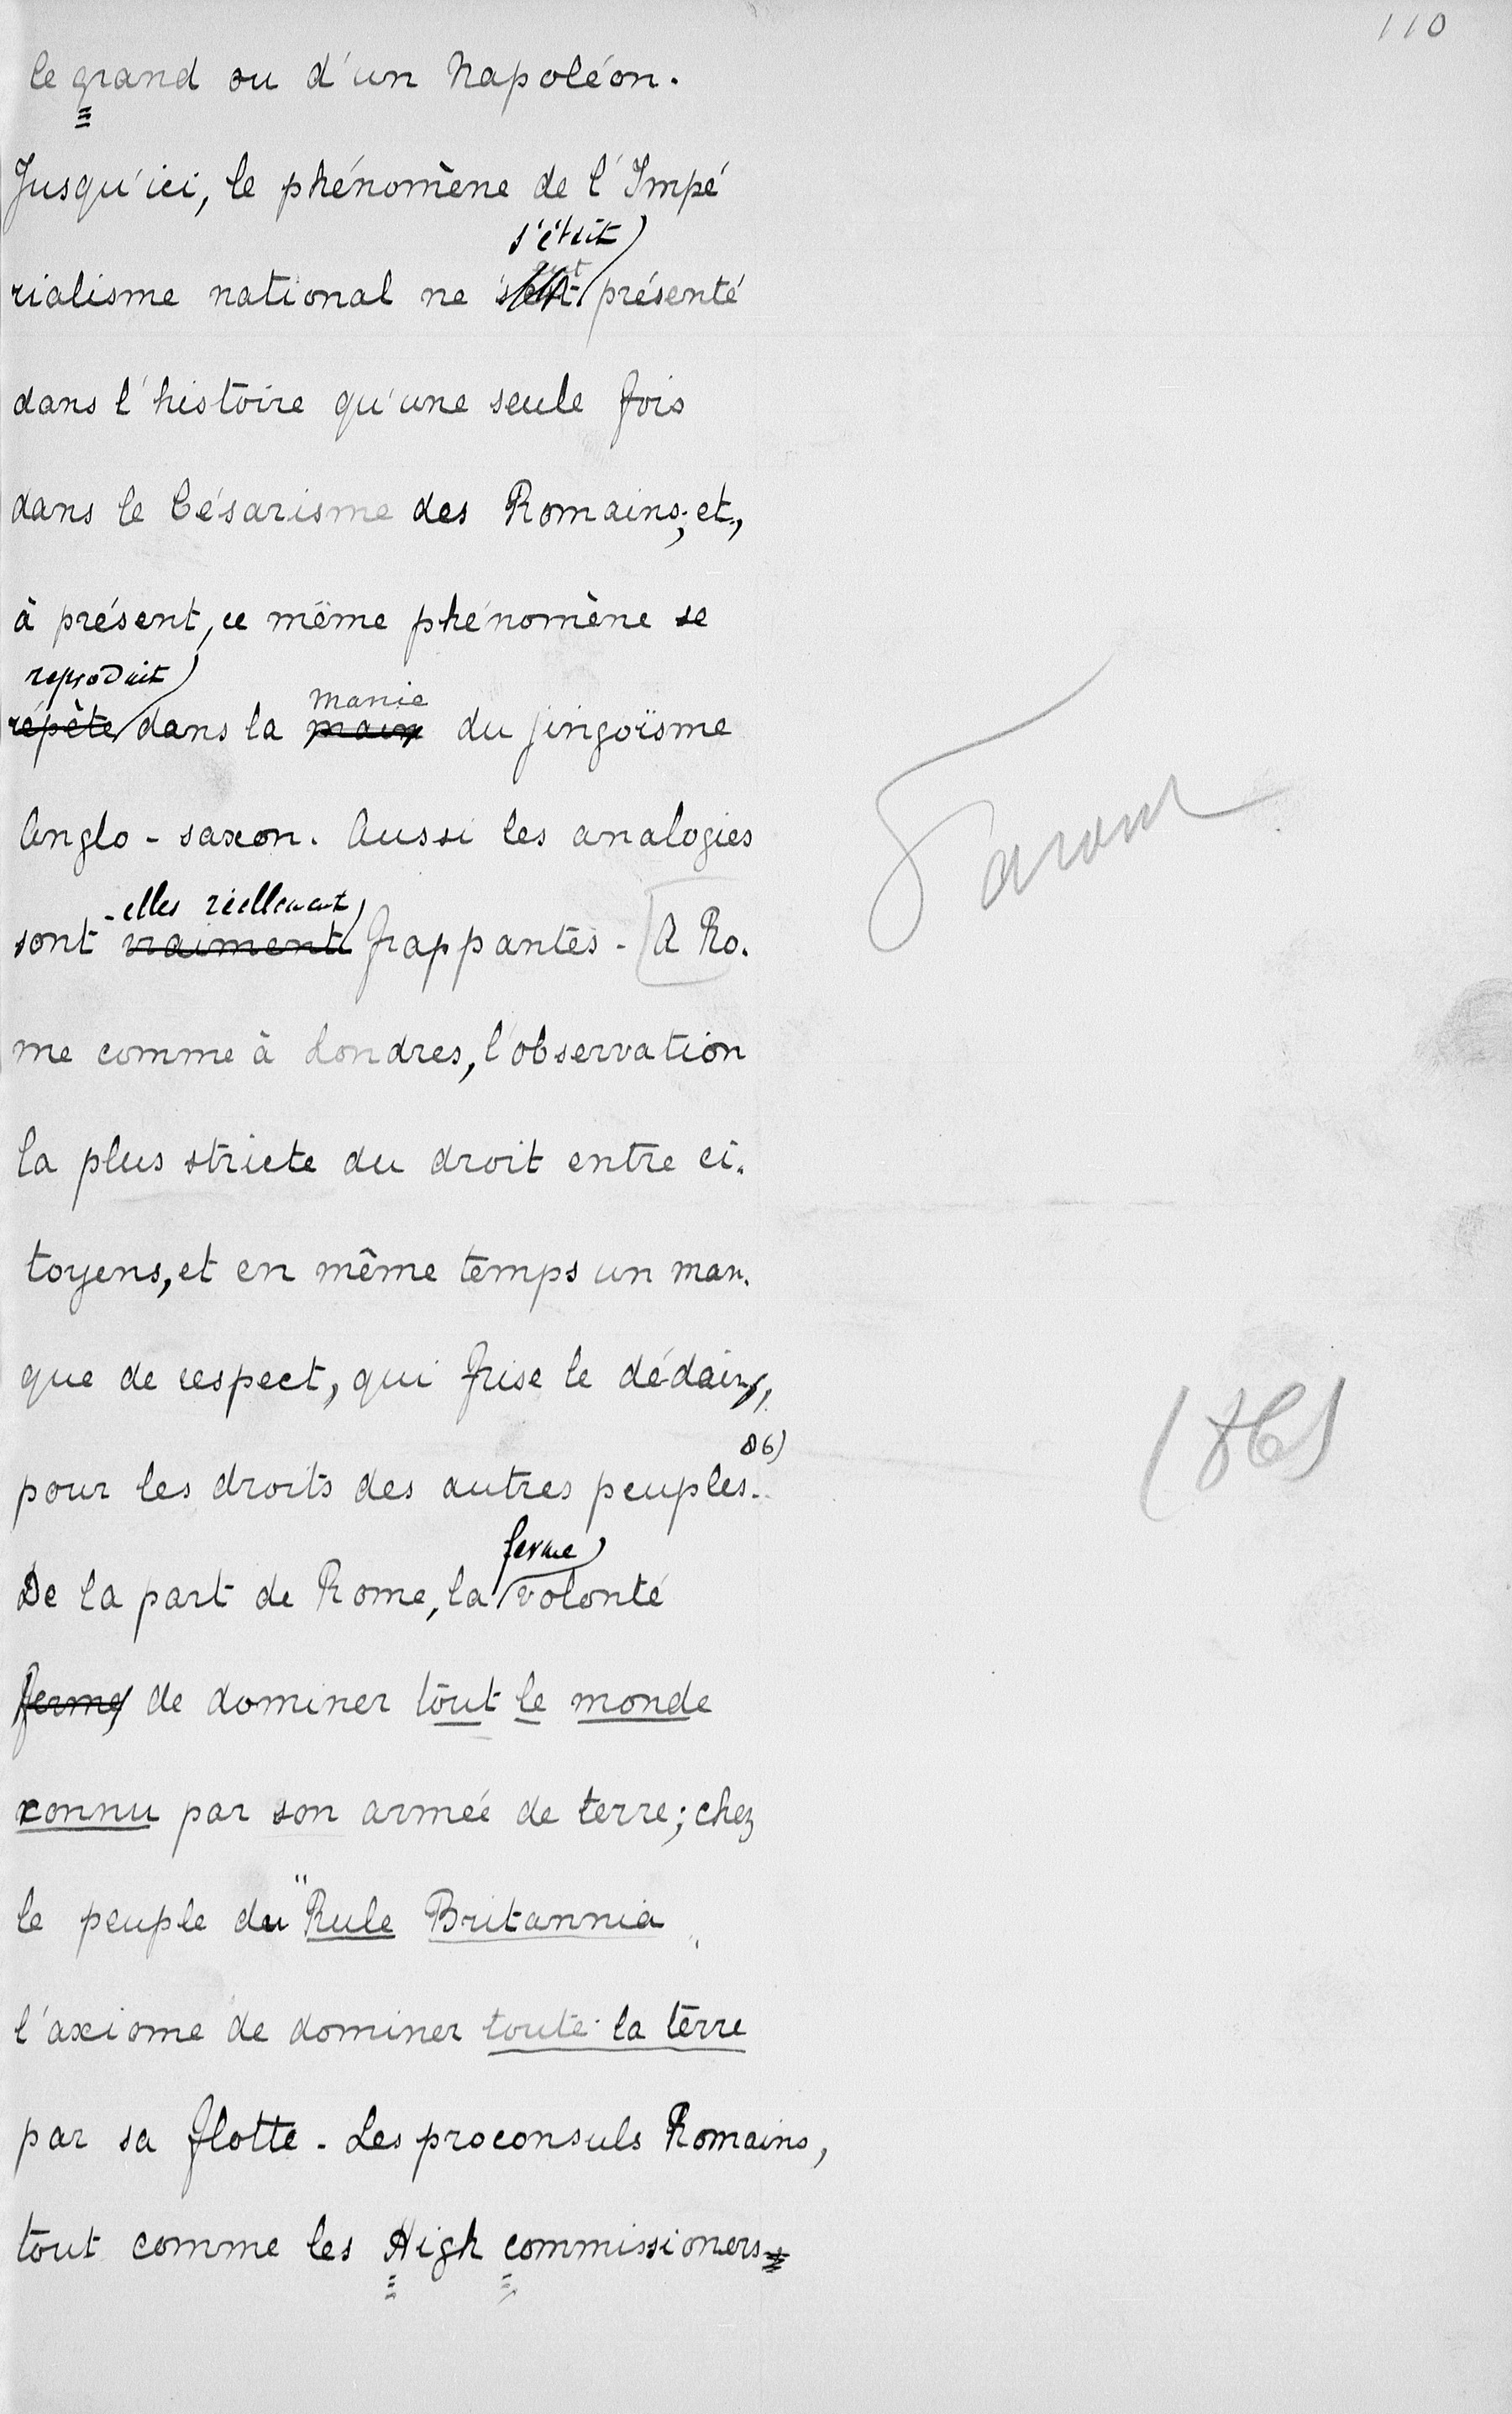 110
le grand ou d'un Napoléon.
Jusqu'ici, le phénomène de l'Impé
s'était
rialisme national ne présenté
dans l'histoire qu'une seule fois
dans le Césarisme des Romains; et,
à présent, ce même phénomène se
reproduit
répête dans la manie du jingoïsme
Anglo-saxon. Aussi les analogies
-elles réellement
sont vraiment frappantes. A Ro.
me comme à Londres, l'observation
la plus stricte du droit entre ci.
toyens, et en même temps un man.
que de respect, qui frise le dédain,
86)
pour les droits des autres peuples.
ferme
De la part de Rome, la volonté
ferme de dominer tout le monde
connu par son armée de terre; chez
le peuple du "Rule Britannia
l'axiome de dominer toute la terre
par sa flotte. Les proconsuls Romains,
tout comme les High commissioners